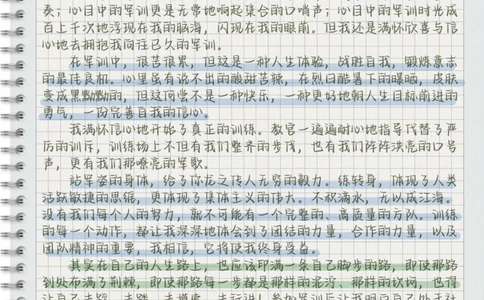 奏；心目中的军训更是无常地响起集合的口哨声；心目中的军训时光成
百上千次地浮现在我的脑海，闪现在我的眼前。但我还是满怀欣喜与信
心地去拥抱我向往已久的军训。
在军训中，很苦很累，但这是一种人生体验，战胜自我，锻炼意志
的最佳良机。心里虽有说不出的酸甜苦辣，在烈日酷暑下的曝晒，皮肤
变成黑黝黝的，但这何尝不是一种快乐，一种更好地朝人生目标前进的
勇气，一份完善自我的信心。
我满怀信心地开始了真正的训练。教官一遍遍耐心地指导代替了严
厉的训斥，训练场上不但有我们整齐的步伐，也有我们阵阵洪亮的口号
声，更有我们那嘹亮的军歌。
站军姿的身体，给了你龙之传人无穷的毅力。练转身，体现了人类
活跃敏捷的思绪，更体现了集体主义的伟大。不积滴水，无以成江海。
没有我们每个人的努力，就不可能有一个完整的、高质量的方队。训练
的每一个动作，都让我深深地体会到了团结的力量，合作的力量，以及
团队精神的重要，我相信，它将使我终身受益。
其实在自己的人生路上，也应该印满一条自己脚步的路，即使那路
到处布满了荆棘，即使那路每一步都是那样的泥泞，那样的坎坷，也得